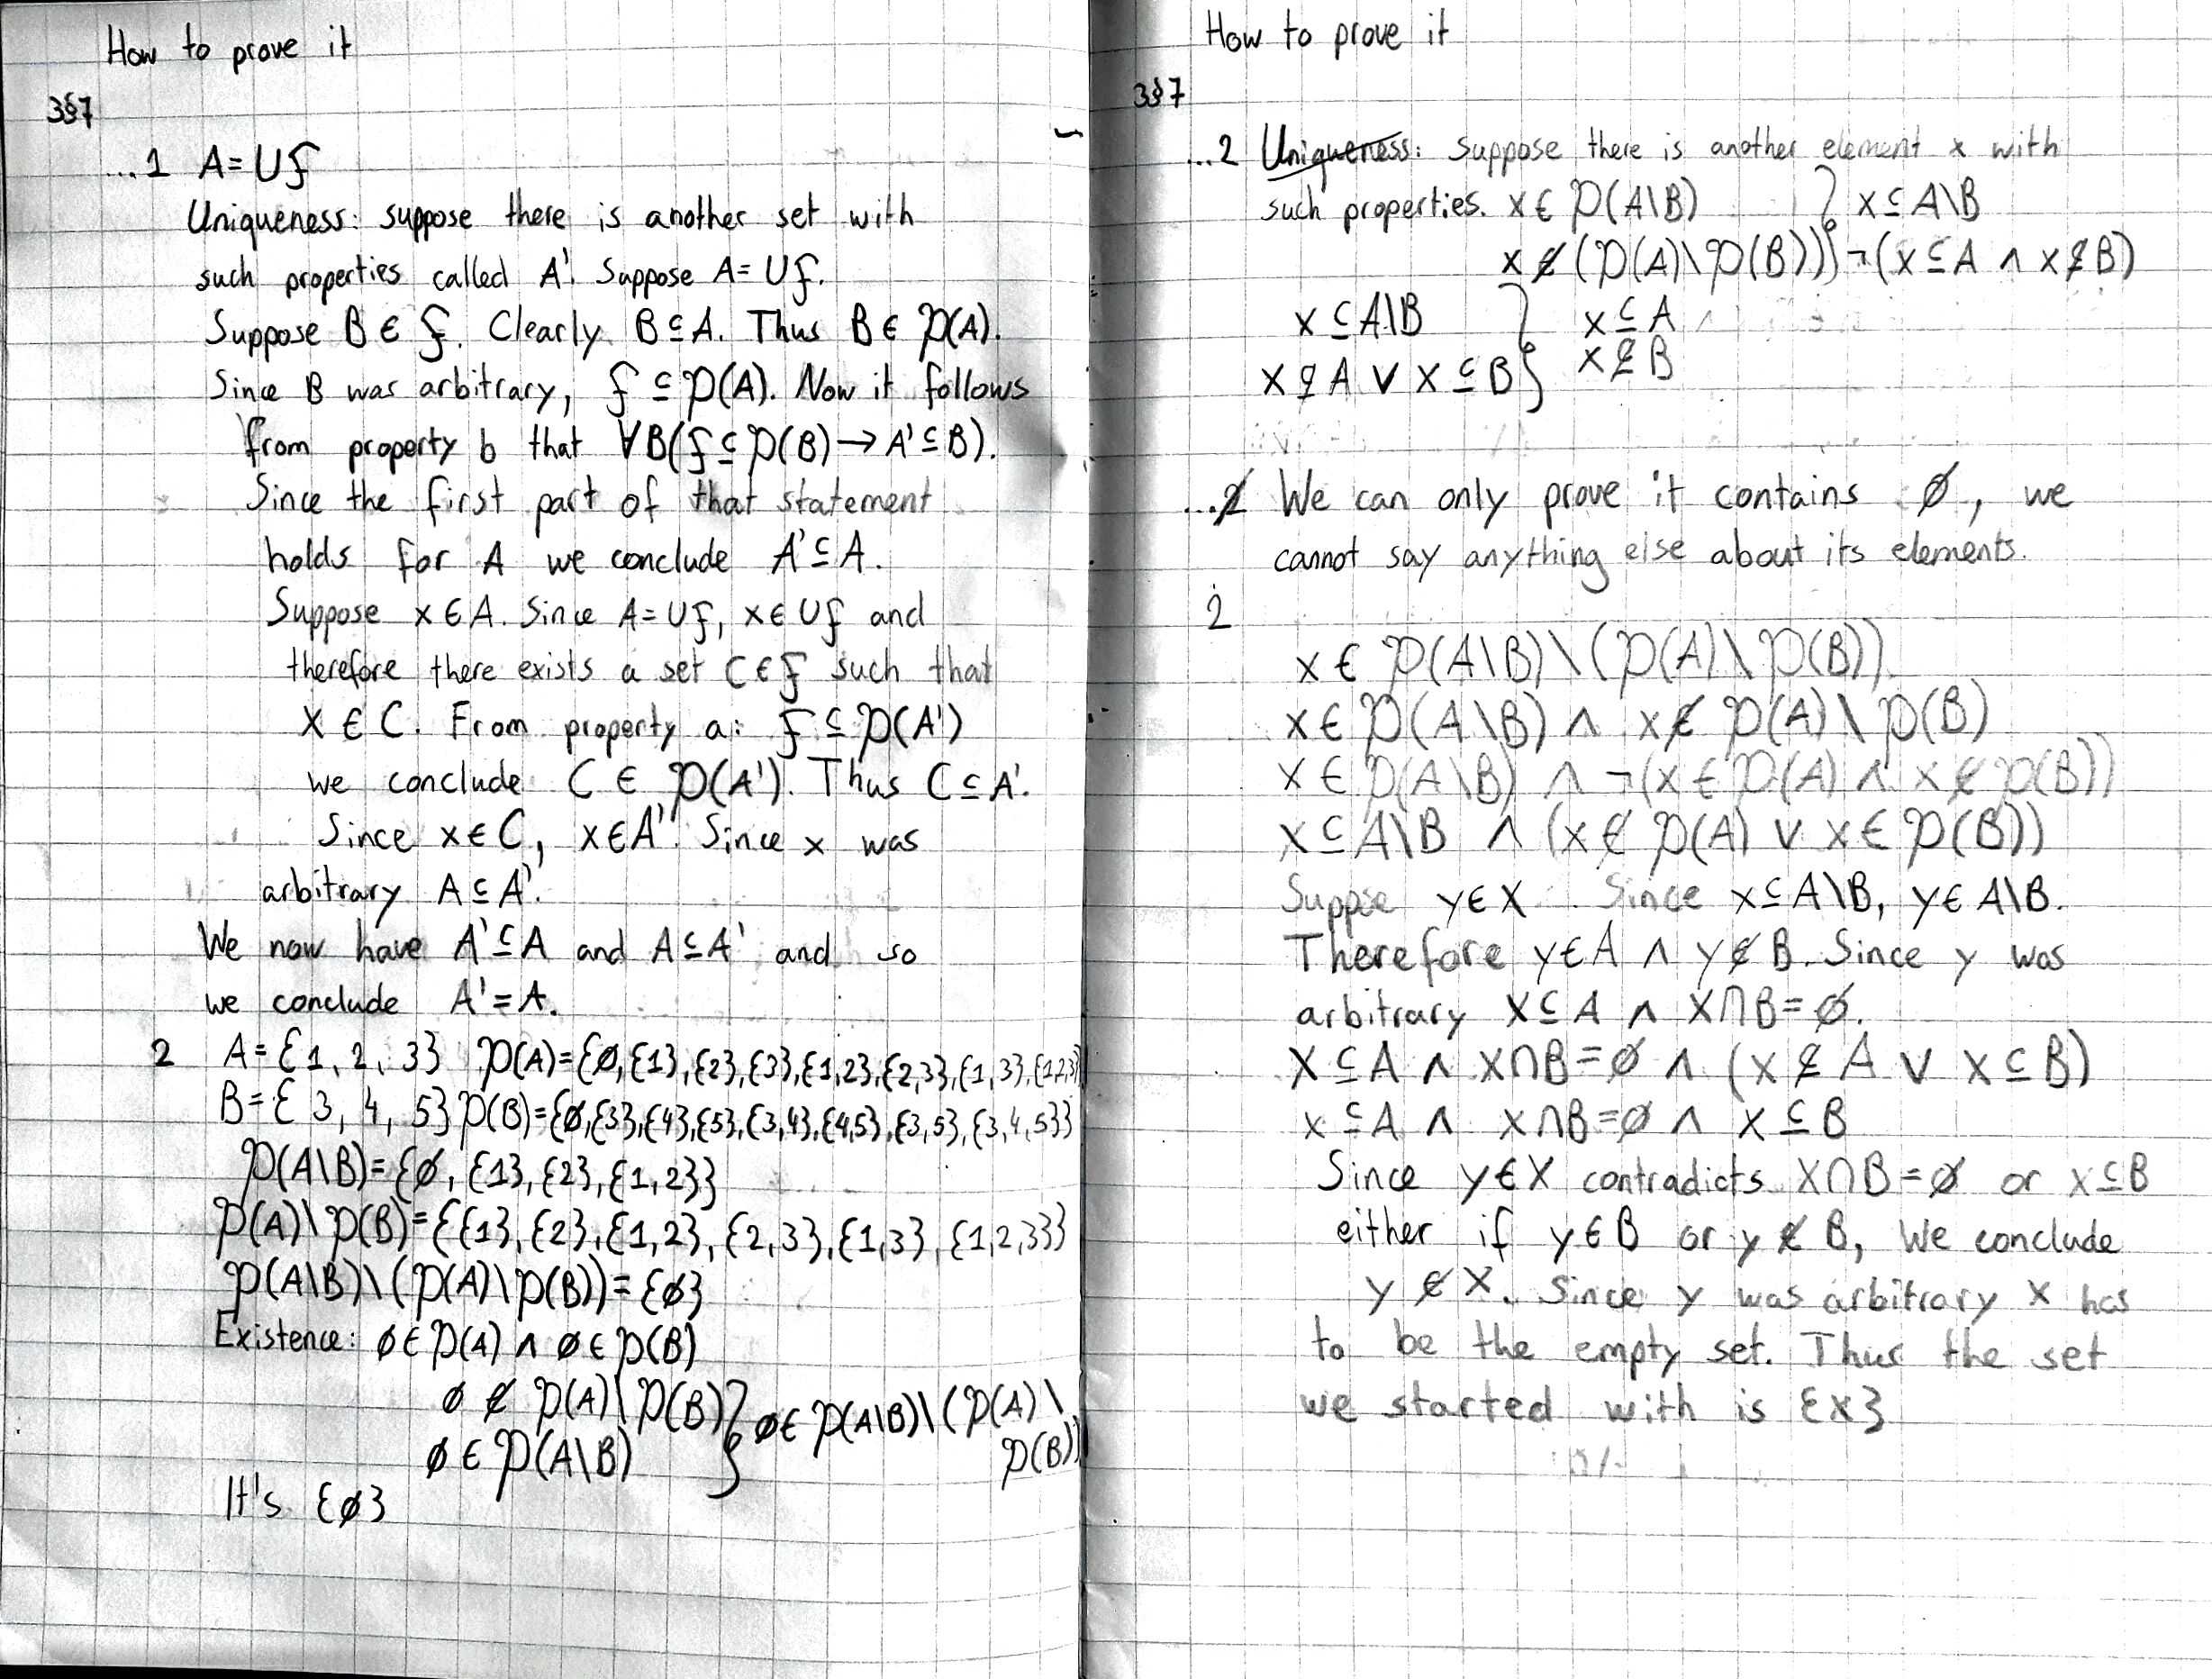 How to prove it
3§7
...1 A=∪F
Uniqueness: suppose there is another set with
such properties called A'. Suppose A=∪F.
Suppose B∈F. Clearly B⊆A. Thus B∈P(A).
Since B was arbitrary, F⊆P(A). Now it follows
from property b that ∀B(F⊆P(B)→A'⊆B).
Since the first part of that statement
holds for A we conclude A'⊆A.
Suppose x∈A. Since A=∪F, x∈∪F and
therefore there exists a set C∈F such that
x∈C. From property a: F⊆P(A')
we conclude C∈P(A'). Thus C⊆A'.
Since x∈C, x∈A'. Since x was
arbitrary A⊆A'.
We now have A'⊆A and A⊆A' and so
we conclude A'=A.
2 A={1, 2, 3} P(A)={∅,{1},{2},{3},{1,2},{2,3},{1,3},{1,2,3}
B={3, 4, 5} P(B)={∅,{3},{4},{5},{3,4},{4,5},{3,5},{3,4,5}}
P(A\B)={∅, {1}, {2}, {1,2}}
P(A)\P(B)={{1}, {2}, {1,2}, {2,3}, {1,3}, {1,2,3}}
P(A\B)\(P(A)\P(B))={∅}
Existence: ∅∈P(A) ∧ ∅∈P(B)
∅∉P(A)\P(B) } ∅∈P(A\B)\(P(A)\
∅∈P(A\B) P(B))
It's {∅}
How to prove it
3§7
...2 Uniqueness: suppose there is another element x with
such properties. x∈P(A\B) } x⊆A\B
x∉(P(A)\P(B))} ¬(x⊆A ∧ x⊈B)
x⊆A\B } x⊆A
x⊈A ∨ x⊆B } x⊈B
...2 We can only prove it contains ∅, we
cannot say anything else about its elements.
2
x∈P(A\B)\(P(A)\P(B))
x∈P(A\B) ∧ x∉P(A)\P(B)
x∈P(A\B) ∧ ¬(x∈P(A) ∧ x∉P(B))
x⊆A\B ∧ (x∉P(A) ∨ x∈P(B))
Suppose y∈x. Since x⊆A\B, y∈A\B.
Therefore y∈A ∧ y∉B. Since y was
arbitrary x⊆A ∧ x∩B=∅.
x⊆A ∧ x∩B=∅ ∧ (x⊈A ∨ x⊆B)
x⊆A ∧ x∩B=∅ ∧ x⊆B
Since y∈x contradicts x∩B=∅ or x⊆B
either if y∈B or y∉B, we conclude
y∉x. Since y was arbitrary x has
to be the empty set. Thus the set
we started with is {x}